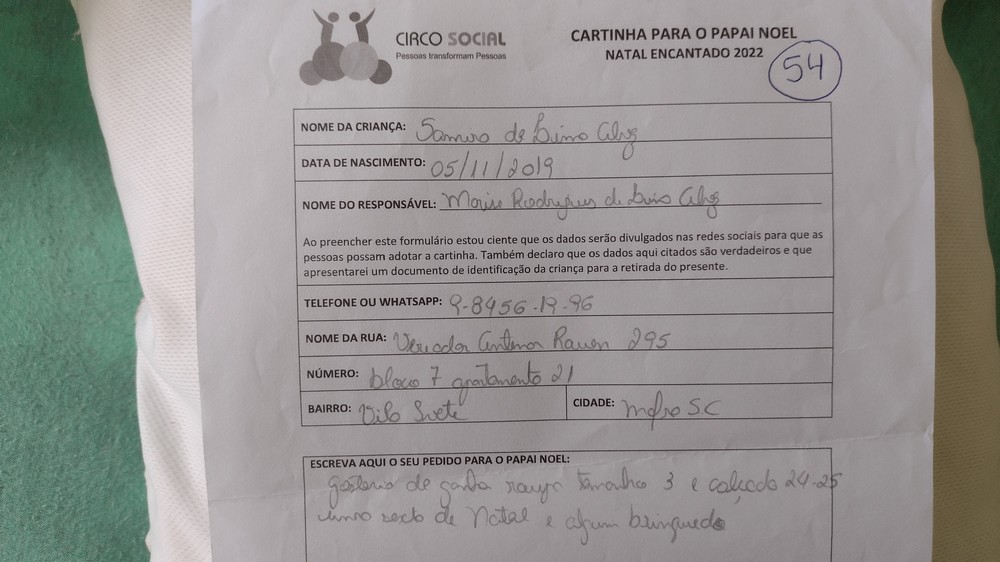 CIRCO SOCIAL
Pessoas transformam Pessoas
CARTINHA PARA O PAPAI NOEL
NATAL ENCANTADO 2022
54
NOME DA CRIANÇA: de Lima
DATA DE NASCIMENTO: 05/11/2019
NOME DO RESPONSÁVEL: Rodrigues de Lima
Ao preencher este formulário estou ciente que os dados serão divulgados nas redes sociais para que as
pessoas possam adotar a cartinha. Também declaro que os dados aqui citados são verdadeiros e que
apresentarei um documento de identificação da criança para a retirada do presente.
TELEFONE OU WHATSAPP: 9-8456-19-96
NOME DA RUA: Antenor Rauen 295
NÚMERO: bloco 7 apartamento 21
BAIRRO: Vila Ivete
CIDADE: Mafra SC
ESCREVA AQUI O SEU PEDIDO PARA O PAPAI NOEL:
gostaria de ganha roupa tamanho 3 e calçado 24-25
uma sexta de Natal e algum brinquedo